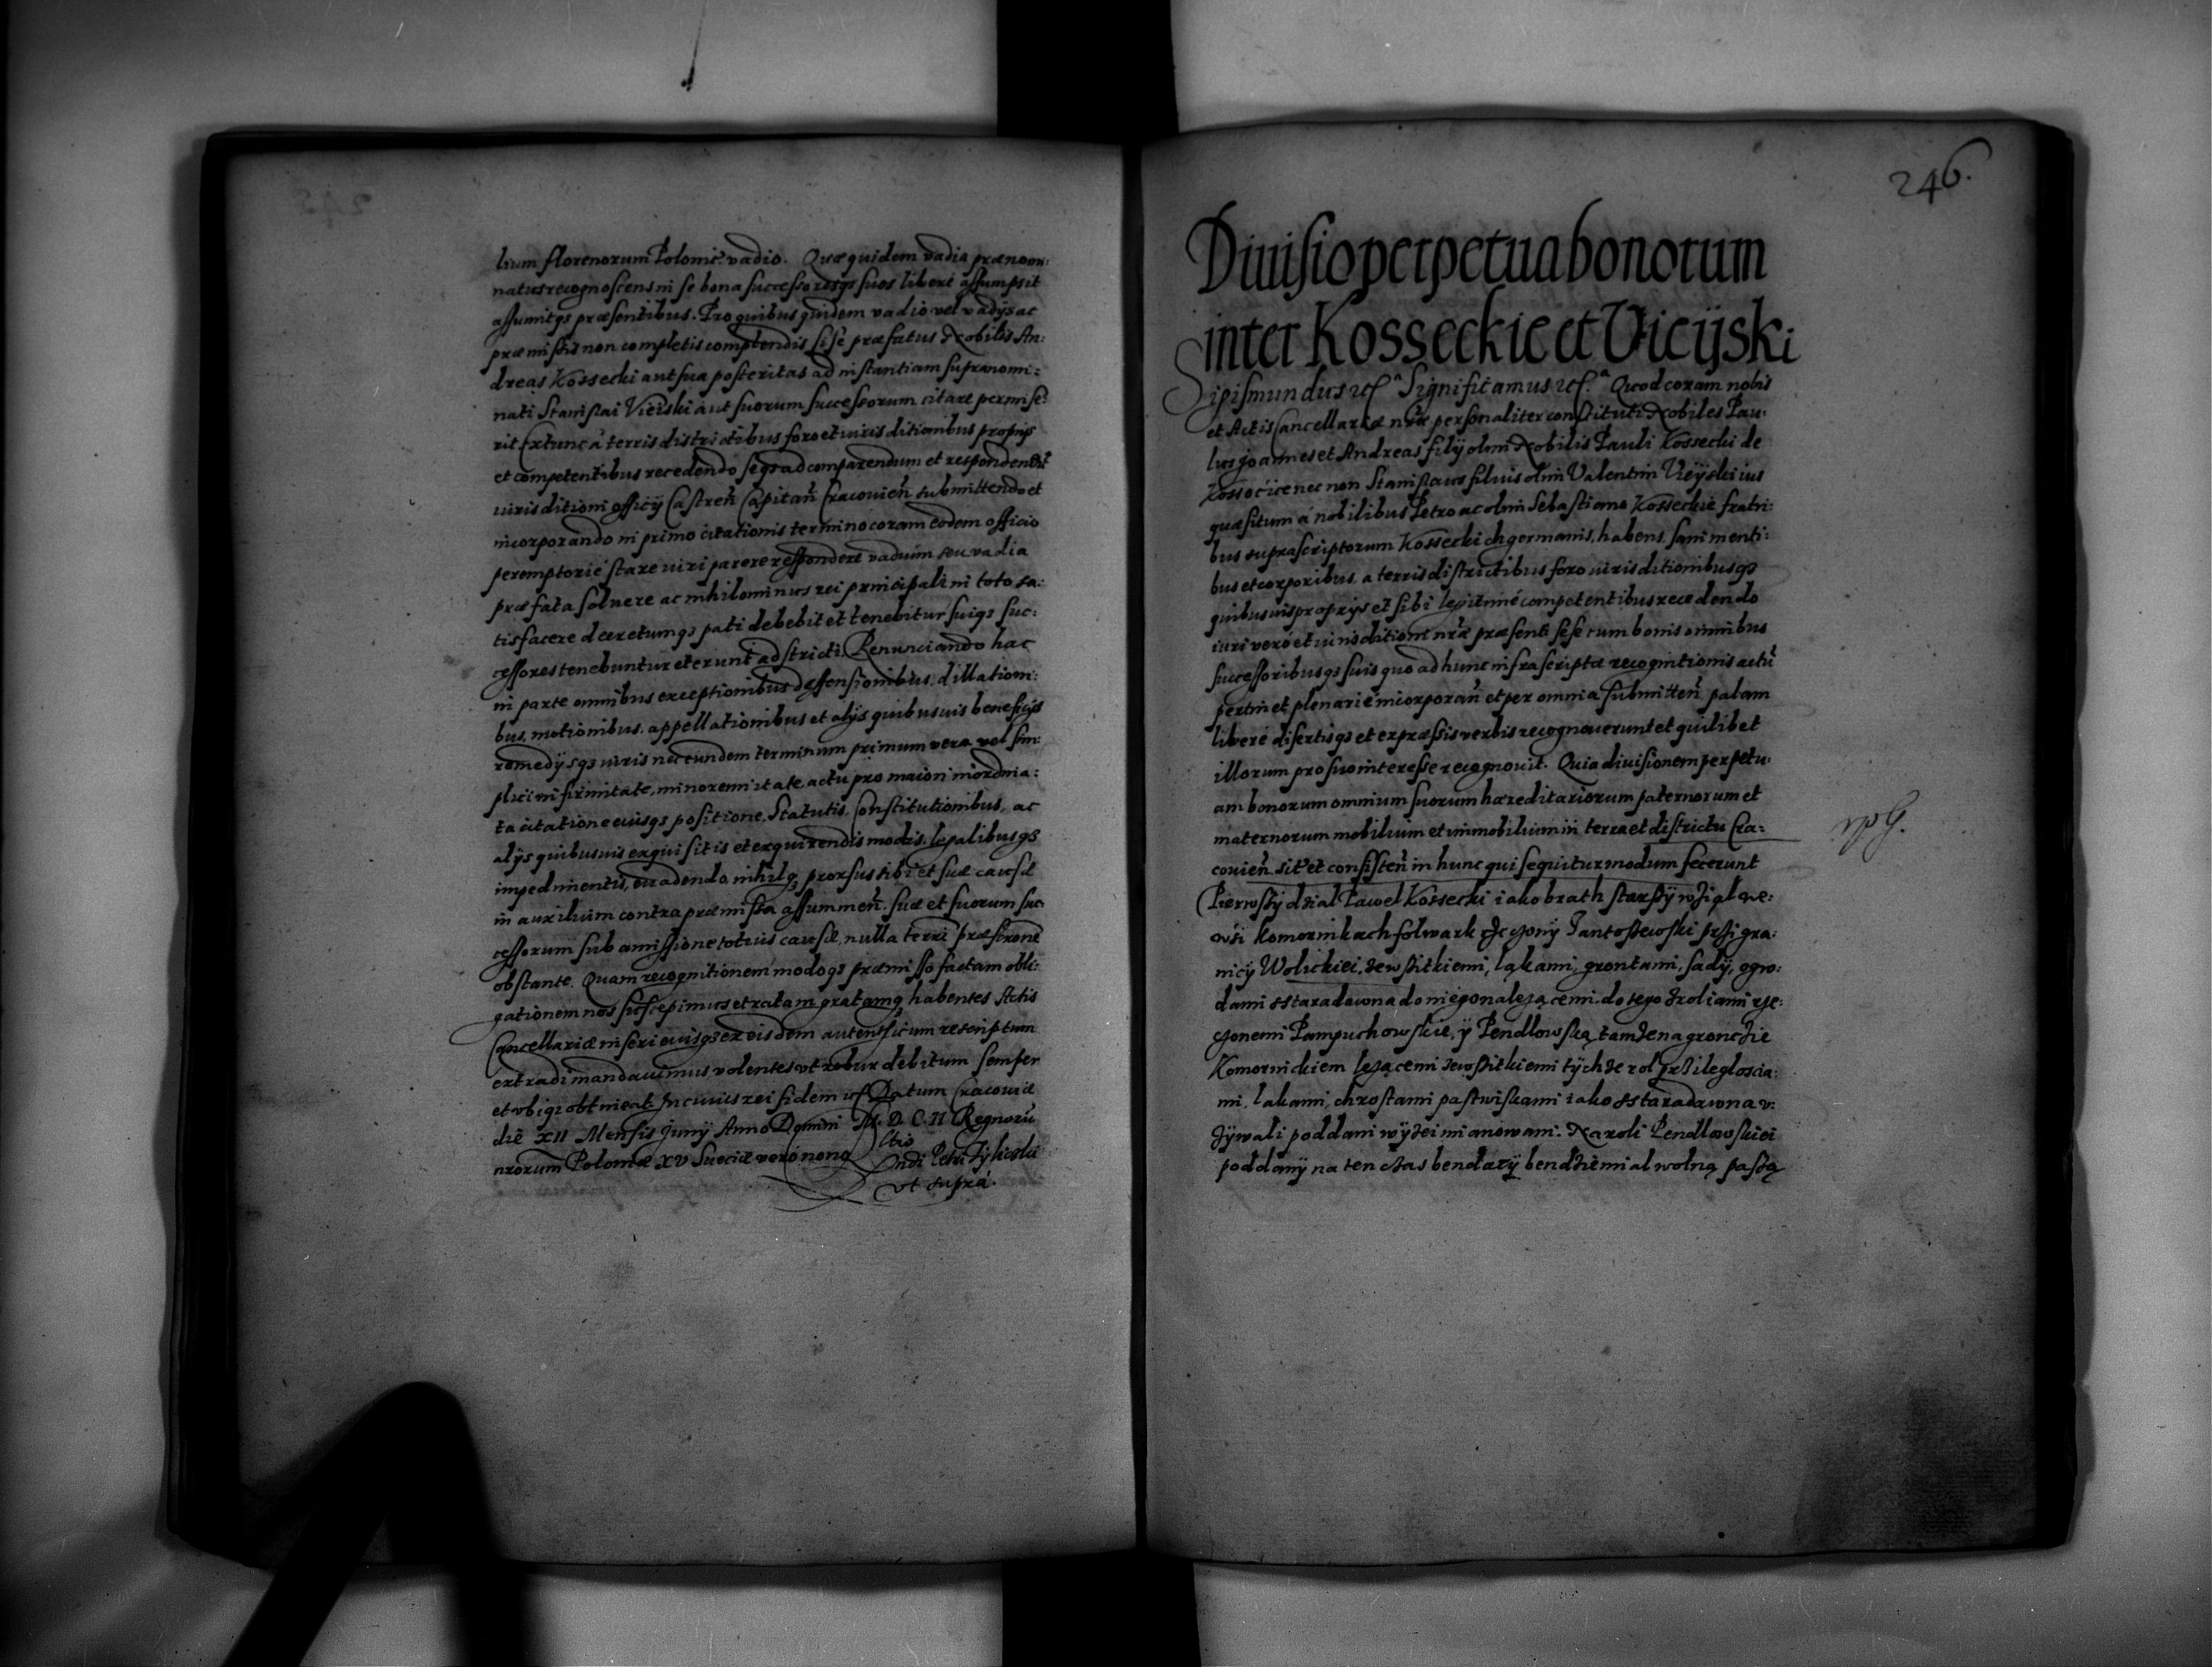 lium florenorum Polonic. vadio. Quæ quidem vadia prænomi:
natus recognoscens in se bona successoresqs suos liberè assumpsit
assumitqs præsentibus. Pro quibus quidem vadio vel vadijs ac
præmissis non completis complendis si se præfatus Nobilis An:
dreas Kossecki aut sua posteritas ad instantiam supranomi:
nati Stanislai Vieiski aut suorum successorum citare permise:
rit Extunc à terris districtibus foro et iurisditionibus proprijs
et competentibus recedendo seqs ad comparendum et respondendũ
iurisditioni officij Castreñ Capitañ Cracovieñ submittendo et
incorporando in primo citationis termino coram eodem officio
peremptoriè stare iuri parere respondere vadium seu vadia
præfata solvere ac nihilominus rei principali in toto sa:
tisfacere decretumqs pati debebit et tenebitur suiqs suc:
cessores tenebuntur et erunt adstricti. Renunciando hac
in parte omnibus exceptionibus deffensionibus, dillationi:
bus, motionibus, appellationibus et alijs quibusuis beneficijs
remedijsqs iuris nec eundem terminum primum vera vel sim:
plici infirmitate, minorennitate, actu pro maiori inordina:
ta citatione eiusqs positione, Statutis, Constitutionibus, ac
alijs quibusuis exquisitis et exquirendis modis, legalibusqs
impedimentis, euadendo, nihilqs prorsus sibi et suæ causæ
in auxilium contra præmissa assummeñ. suæ et suorum suc:
cessorum sub amissione totius causæ, nulla terri præscrone
obstante. Quam recognitionem modoqs præmisso factam obli:
gationem nos suscepimus et ratam gratamqs habentes Actis
Cancellariæ inseri eiusqs ex eisdem autenticum rescriptum
extradi mandauimus volentes vt robur debitum semper
et vbiqs obtineat. In cuius rei fidem ut Datum Cracouiæ
die XII Mensis Junij Anno Domini M. D. C. II Regnorũ
nrorum Poloniæ XV Sueciæ verò nono
vt supra.
246.
Diuisio perpetua bonorum
inter Kosseckie et Vieijski
Sigismundus Significamus Quod coram nobis
et Actis Cancellariæ nræ personaliter constituti Nobiles Pau:
lus Joannes et Andreas filij olim Nobilis Pauli Kossecki de
Kossocice nec non Stanislaus filius olim Valentini Vieÿski ius
quæsitum à nobilibus Petro ac olim Sebastiano Kosseckie fratri:
bus suprascriptorum Kosseckich germanis, habens, sani menti:
bus et corporibus, a terris districtibus foro iurisditionibusqs
quibusuis proprijs et sibi legitimè competentibus recedendo
iuri verò et iurisditioni nræ præsenti sese cum bonis omnibus
successoribusqs suis quo ad hunc infrascriptæ recognitionis actũ
pertin et plenariè incorporañ et per omnia submitteñ, palam
liberè disertisqs et expressis verbis recognouerunt et quilibet
illorum pro suo interesse recognouit. Quia diuisionem perpetu:
am bonorum omnium suorum hæreditariorum paternorum et
maternorum mobilium et immobilium in terra et districtu Cra:
couieñ. sit et consisteñ in hunc qui sequitur modum fecerunt
Pierwszÿ dział Paweł Kossecki iako brath starszÿ wżiął we:
wsi Komornikach folwark rżeczonÿ Jantoszewski przi gra:
nicÿ Wolickiei, zewszitkiemi, ląkami, grontami, sadÿ, ogro:
dami zstaradawna do niego należącemi. do tego z roliami rże:
czonemi Pampuchowskie, ÿ Pendlowską tamże na groncżie
Komornickiem leżącemi zewszitkiemi tÿchże rol prziległoscia:
mi, lakami, chrostami pastwiskami iako zstaradawna v:
żÿwali poddani wÿżei mianowani. Na roli Pendlowskiei
poddanÿ na ten czas bendący bendżie miał wolną paszą